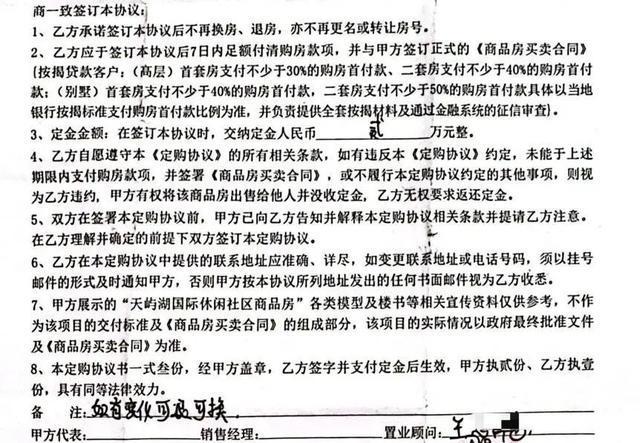 商一致签订本协议：
1、乙方承诺签订本协议后不再换房、退房，亦不再更名或转让房号。
2、乙方应于签订本协议后7日内足额付清购房款项，并与甲方签订正式的《商品房买卖合同》
{按揭贷款客户：（高层）首套房支付不少于30%的购房首付款、二套房支付不少于40%的购房首付
款；（别墅）首套房支付不少于40%的购房首付款，二套房支付不少于50%的购房首付款具体以当地
银行按揭标准支付购房首付款比例为准，并负责提供全套按揭材料及通过金融系统的征信审查}。
3、定金金额：在签订本协议时，交纳定金人民币 贰 万元整。
4、乙方自愿遵守本《定购协议》的所有相关条款，如有违反本《定购协议》约定，未能于上述
期限内支付购房款项，并签署《商品房买卖合同》，或不履行本定购协议约定的其他事项，则视
为乙方违约，甲方有权将该商品房出售给他人并没收定金，乙方无权要求返还定金。
5、双方在签署本定购协议前，甲方已向乙方告知并解释本定购协议相关条款并提请乙方注意。
在乙方理解并确定的前提下双方签订本定购协议。
6、乙方在本定购协议中提供的联系地址应准确、详尽，如变更联系地址或电话号码，须以挂号
邮件的形式及时通知甲方，否则甲方按本协议所列地址发出的任何书面邮件视为乙方收悉。
7、甲方展示的“天屿湖国际休闲社区商品房”各类模型及楼书等相关宣传资料仅供参考，不作
为该项目的交付标准及《商品房买卖合同》的组成部分，该项目的实际情况以政府最终批准文件
及《商品房买卖合同》为准。
8、本定购协议书一式叁份，经甲方盖章，乙方签字并支付定金后生效，甲方执贰份、乙方执壹
份，具有同等法律效力。
备 注：如有变化可退可换
甲方代表： 销售经理： 置业顾问：王